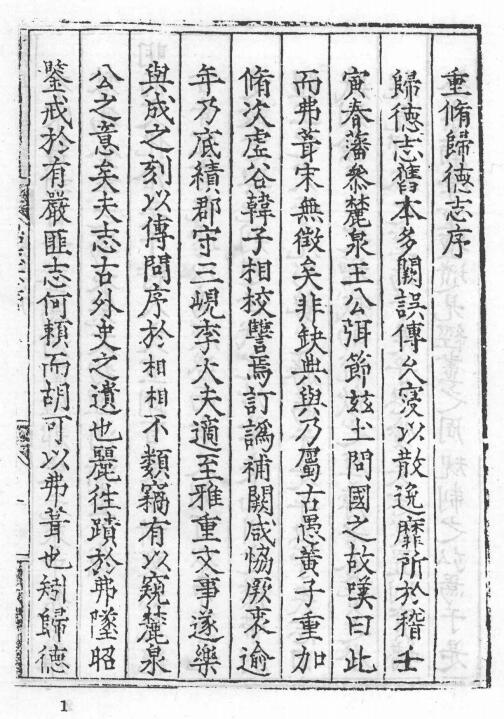 重脩歸德志序
歸德志舊本多闕誤傳久寖以散逸靡所於稽壬
寅春藩叅麓泉王公弭節玆土問國之故嘆曰此
而弗葺宋無徵矣非缺典與乃屬古愚黃子重加
脩次虛谷韓子相校讐焉訂譌補闕咸恊厥衷逾
年乃底績郡守三峴李大夫適至雅重文事遂樂
與成之刻以傳問序於相相不類竊有以窺麓泉
公之意矣夫志古外史之遺也麗徃蹟於弗墜昭
鑒戒於有嚴匪志何賴而胡可以弗葺也矧歸德
1